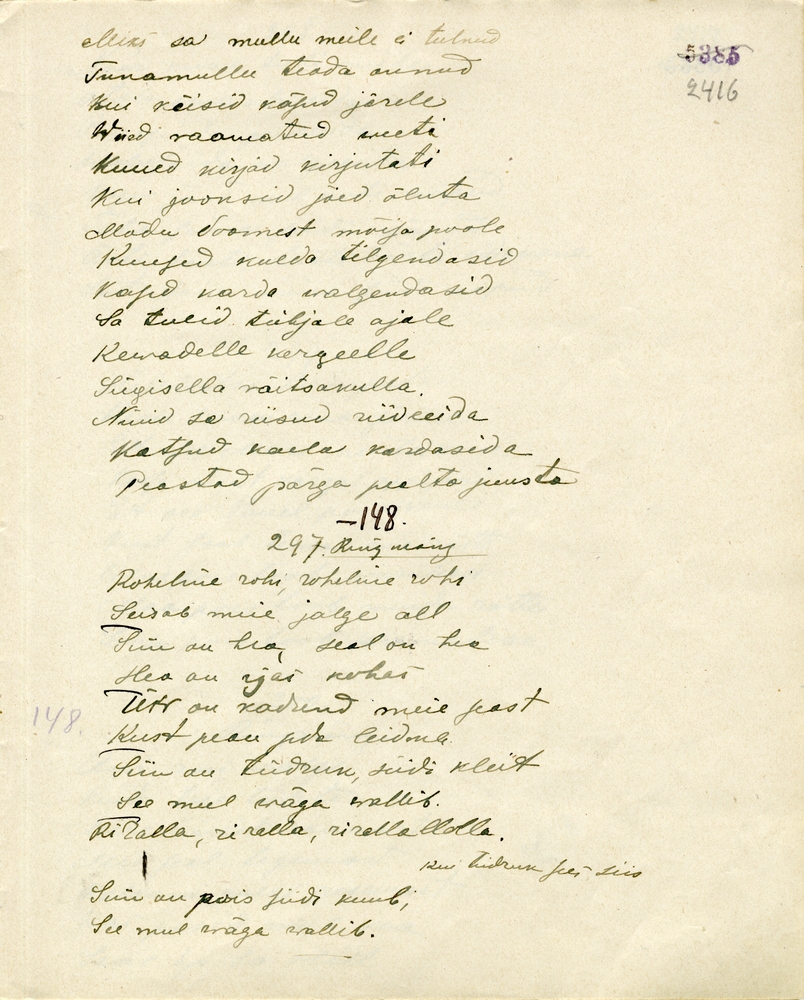 Miks sa mullu meile ei tulnud
5385
2416
Tunamullu teada annud
Kui käisid käsud järele
Wiied raamatud weeti
Kuued kirjad kirjutati
Kui jooksid jõed õluta
Mõdu Soomest mõisa poole
Kuused kulda tilgendasid
Kased karda walgendasid
Sa tulid tühjale ajale
Kewadelle kergeelle
Sügisella räitsakulla.
Nüüd sa riisud riideeida
Katsud kaela kardasida
Peastad pärga pealta juusta
—148.
297. Ring mäng
Roheline rohi, roheline rohi
Seisab meie jalge all
Siin on hea, seal on hea
Hea on igas kohas
Üks on kadund meie seast
148.
Kust pean seda leidma
Siin on tüdruk, siidi kleit
See mul wäga wallib.
Riralla, riralla, rirallallalla.
Kui tüdruk sees siis
Siin on pois siidi kuub;
See mul wäga wallib.